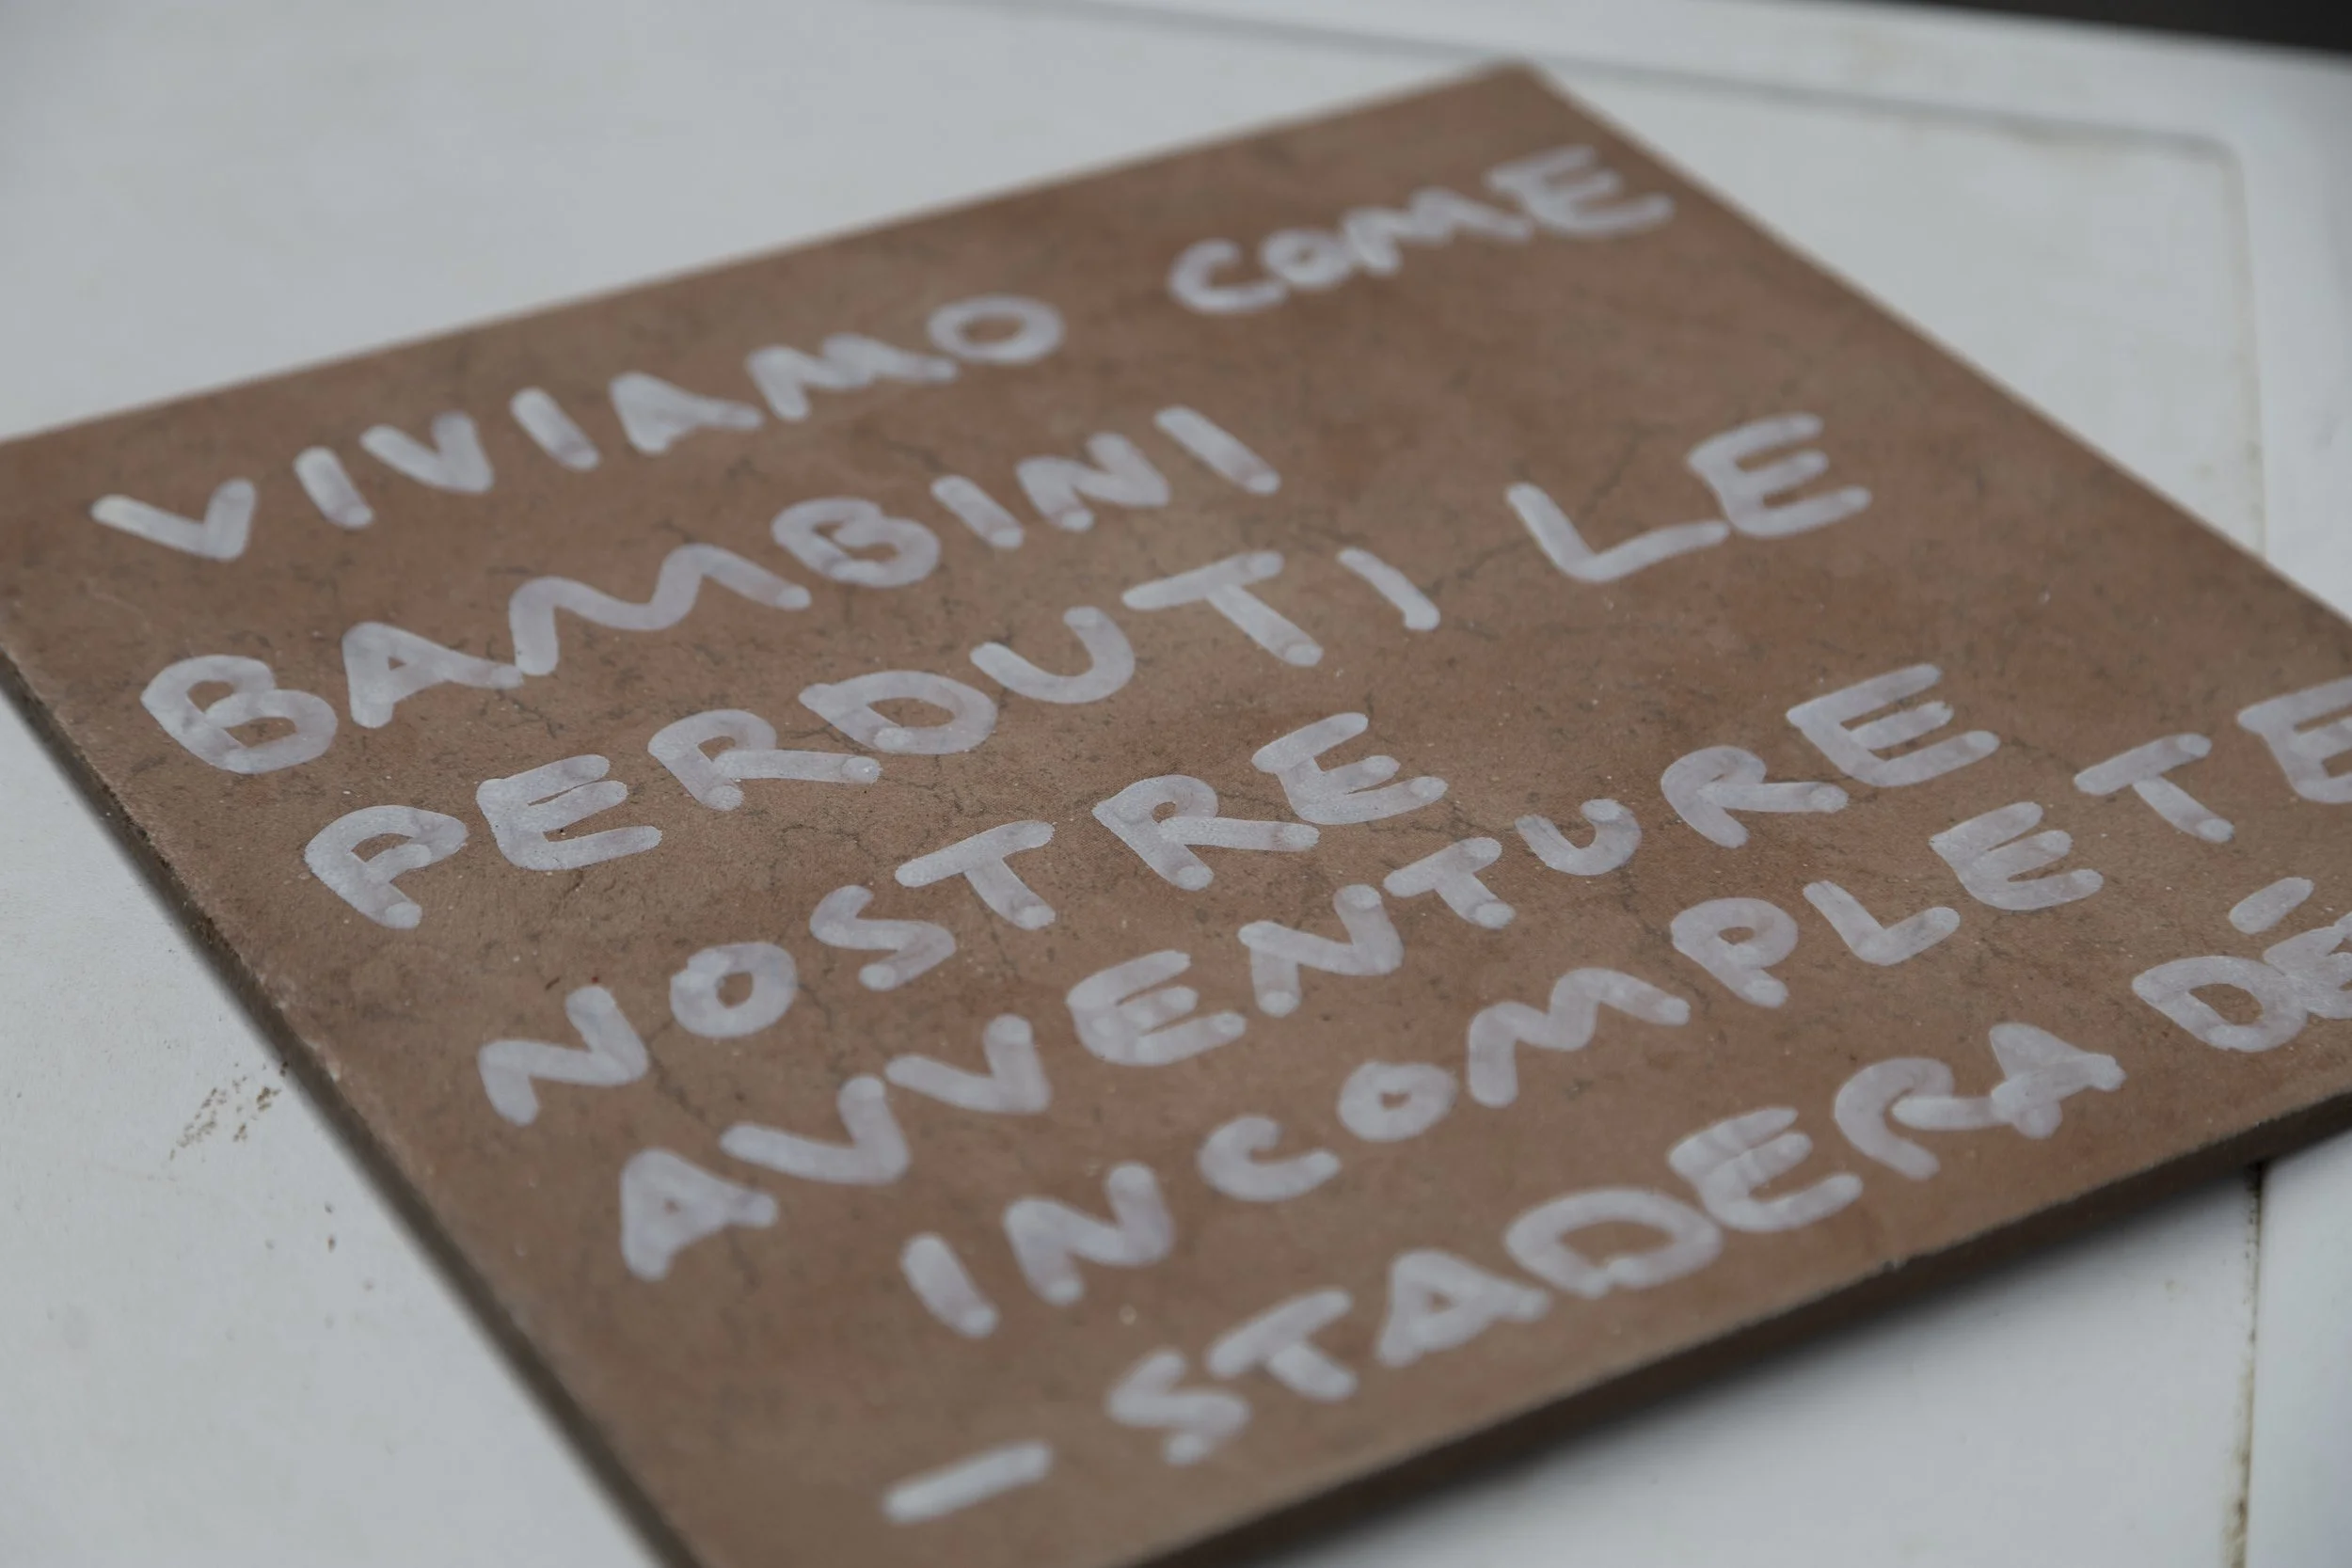 VIVIAMO COME
BAMBINI
PERDUTI LE
NOSTRE
AVVENTURE
INCOMPLETE
- STADERA